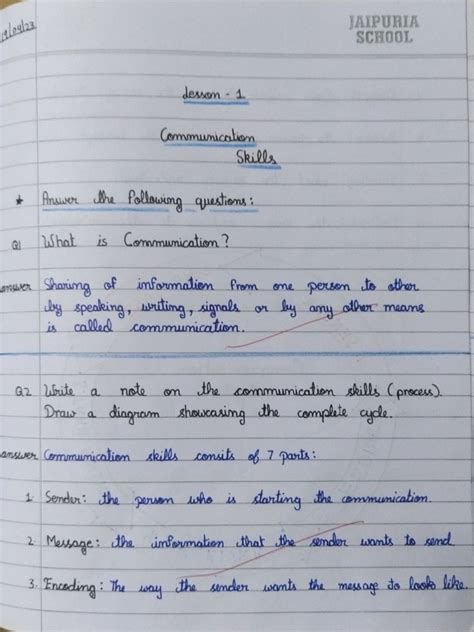 19/04/23
JAIPURIA
SCHOOL
Lesson - 1
Communication
Skills
* Answer the following questions:
Q1 What is Communication?
answer Sharing of information from one person to other
by speaking, writing, signals or by any other means
is called communication.
Q2 Write a note on the communication skills (process).
Draw a diagram showcasing the complete cycle.
answer Communication skills consits of 7 parts:
1. Sender: the person who is starting the communication.
2. Message: the information that the sender wants to send.
3. Encoding: The way the sender wants the message to looks like.